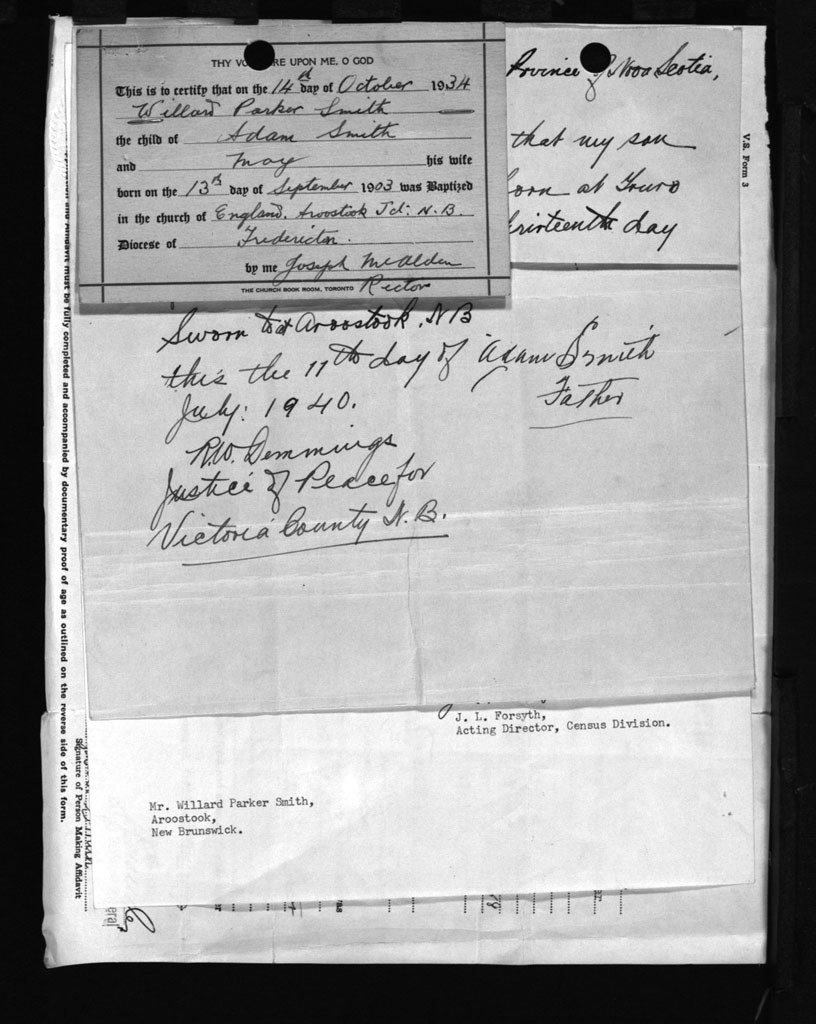 THY VO RE UPON ME, O GOD
This is to certify that on the 14th day of October 1934
Willard Parker Smith
the child of Adam Smith
and May his wife
born on the 13th day of September 1903 was Baptized
in the church of England, Aroostook Jct. N.B.
Diocese of Fredericton.
by me Joseph McAlden
THE CHURCH BOOK ROOM, TORONTO Rector
Province of Nova Scotia,
that my son
born at Truro
thirteenth day
V.S. Form 3
Sworn to at Aroostook, NB
this the 11th day of Adam Smith
July. 1940. Father
R.W. Demmings
Justice of Peace for
Victoria County N.B.
J. L. Forsyth,
Acting Director, Census Division.
Mr. Willard Parker Smith,
Aroostook,
New Brunswick.
and Affidavit must be fully completed and accompanied by documentary proof of age as outlined on the reverse side of this form.
Signature of Person Making Affidavit
eral